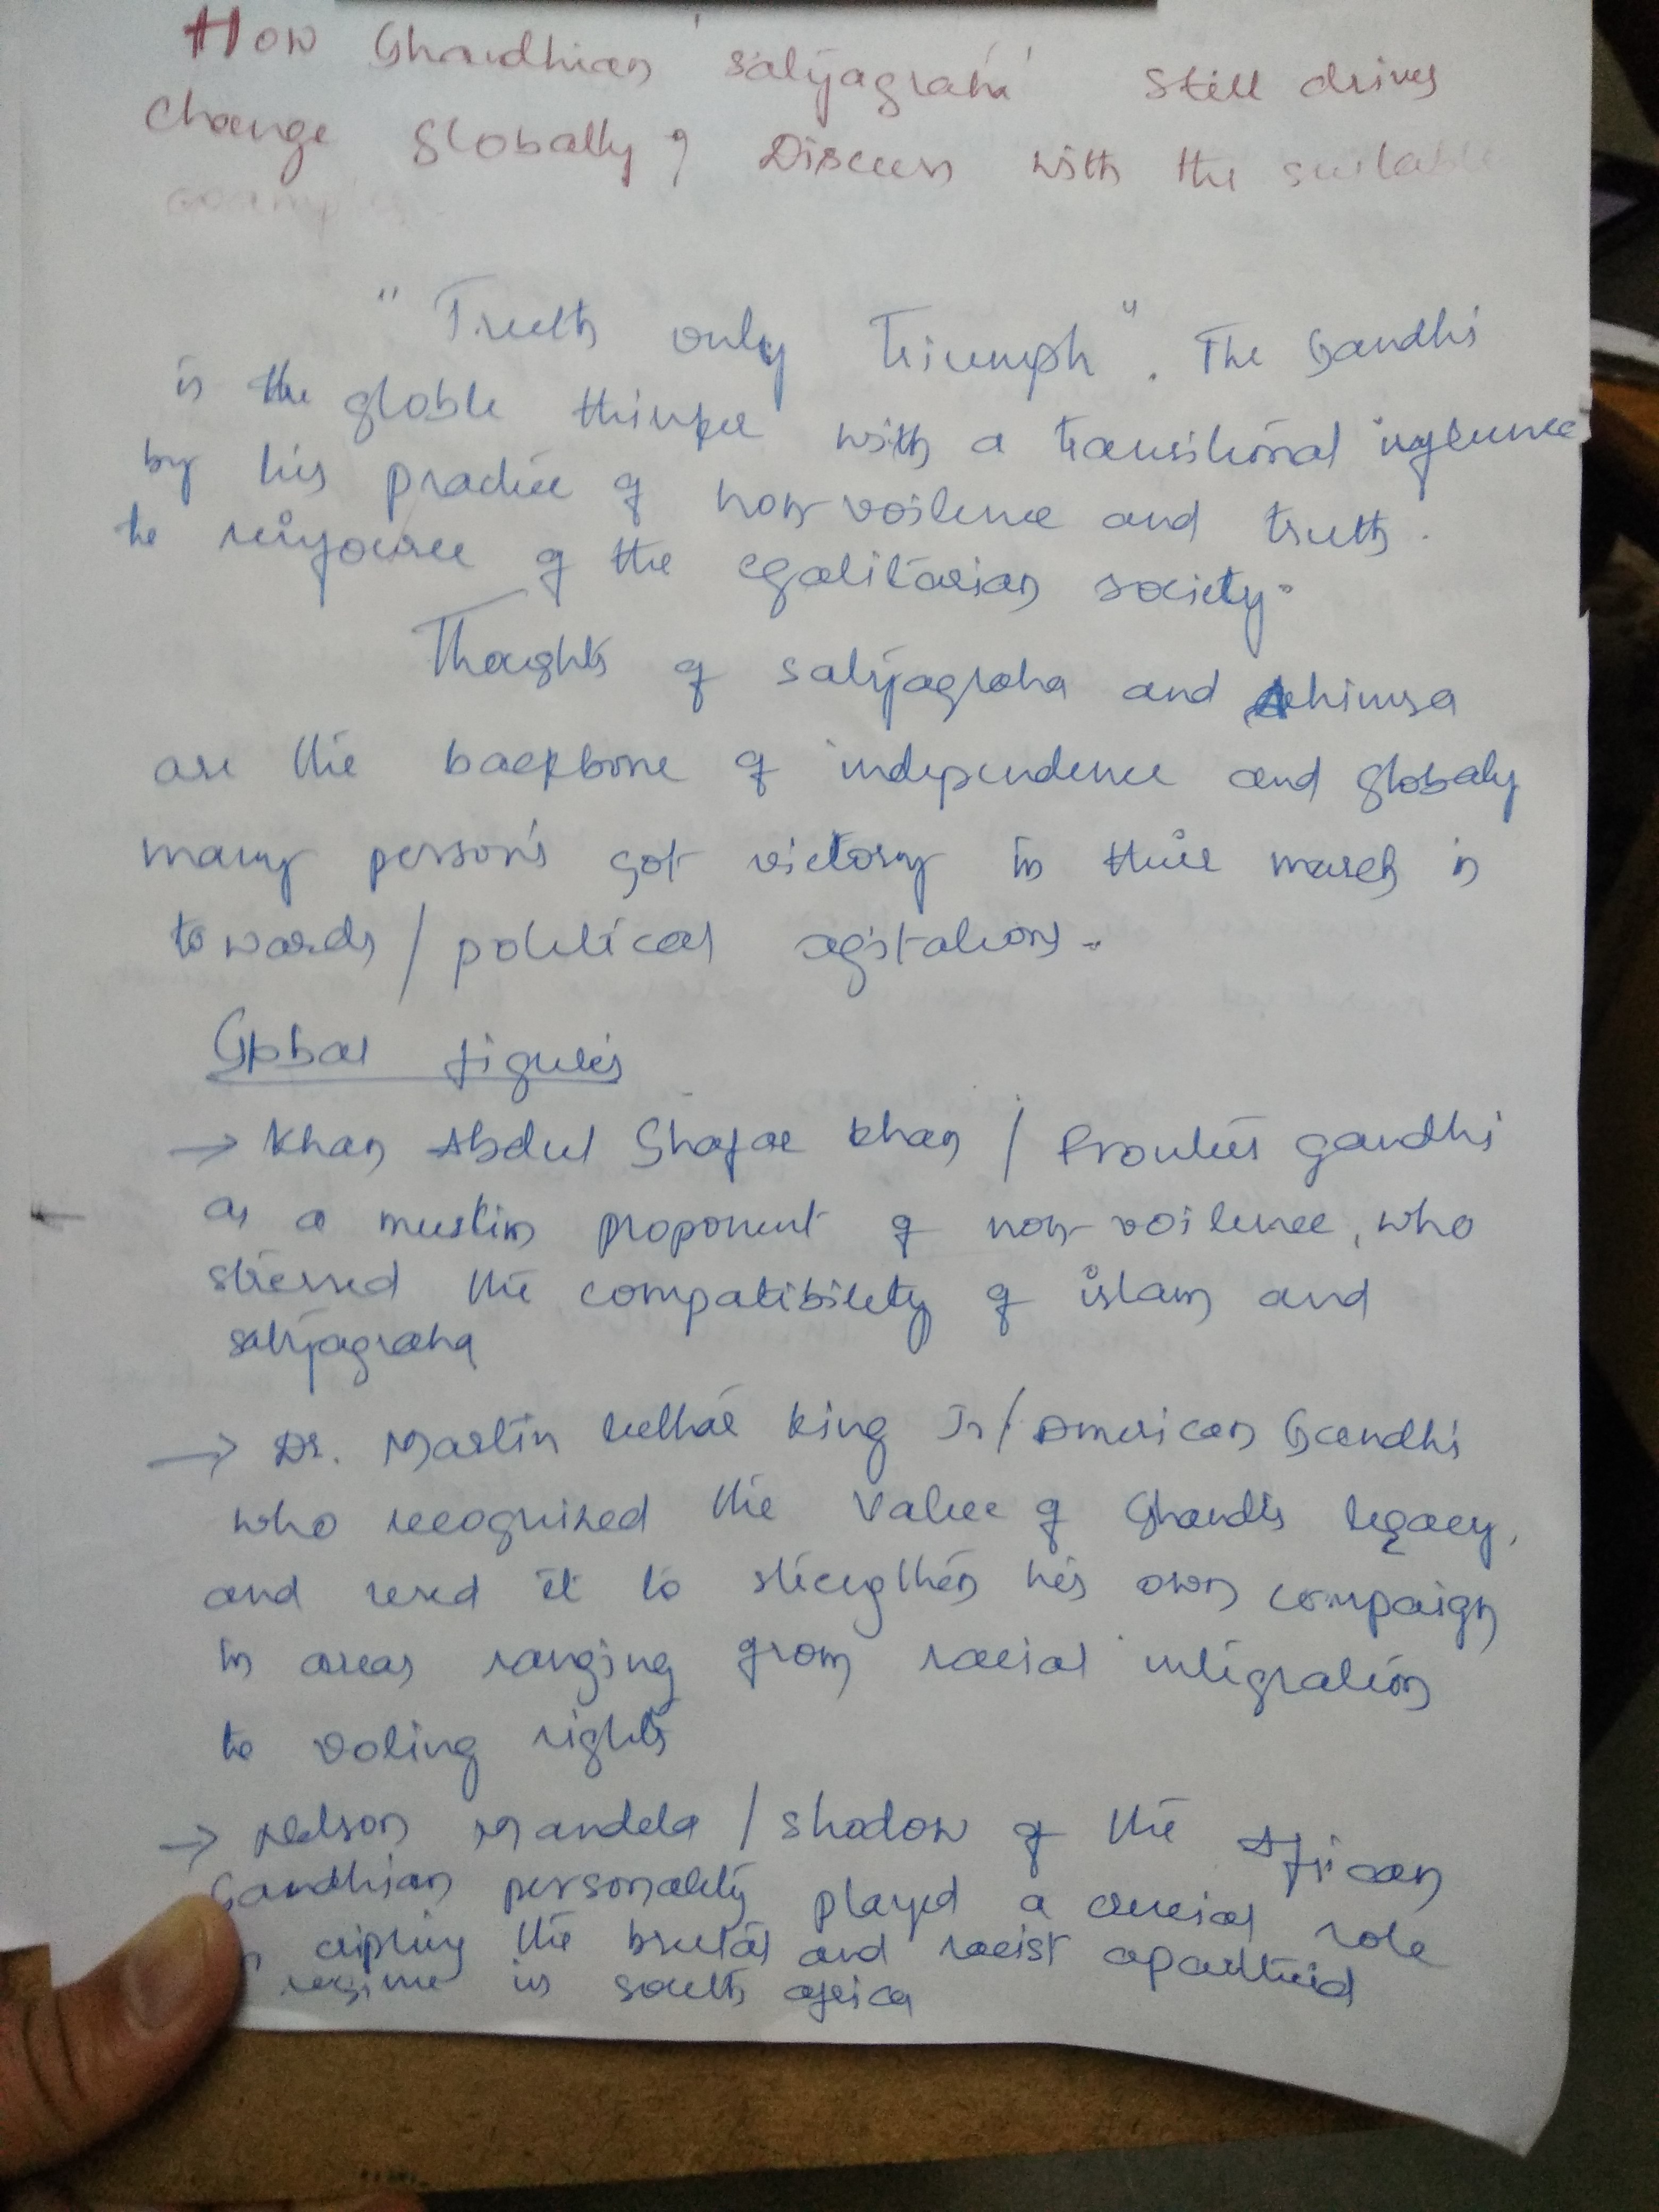 How Ghandhian 'satyagraha' still drives
change globally? Discuss with the suitable
"Truth only Triumph". The Gandhi
is the globle thinker with a transitional influence
by his practice of non-voilence and truth.
to of the egalitarian society.
Thoughts of satyagraha and Ahimsa
are the backbone of independence and globaly
many person's got victory in their march in
towards / political agitations.
Global figures
→ Khan Abdul Ghafar Khan / Frontier gandhi
as a muslim proponent of non-voilence, who
stressed the compatibility of islam and
satyagraha
→ Dr. Martin Luthar King Jr / American Gandhi
who recognized the value of Ghandi's legacy,
and used it to strengthen his own compaign
in areas ranging from racial integration
to voting rights
→ Nelson Mandela / shadow of the African
Gandhian personality played a crucial role
the brutal and racist apartheid
regime in south africa